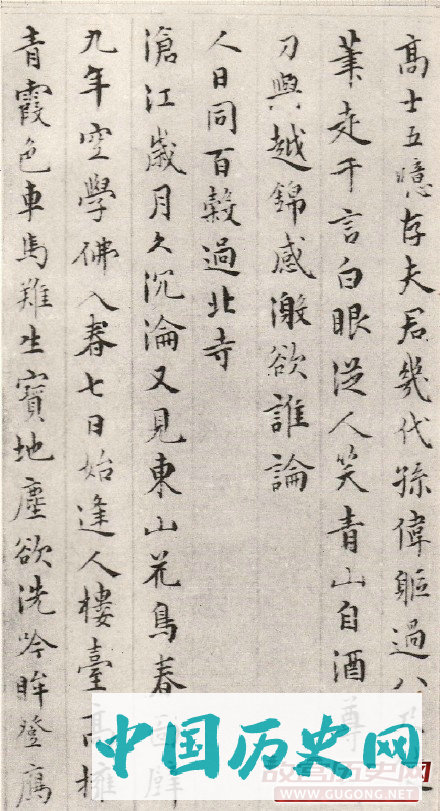 高士五噫存夫君幾代孫偉軀過八
筆走千言白眼從人笑青山自酒
刀與越錦感激欲誰論
人日同百穀過北寺
滄江歲月久沉淪又見東山花鳥春
九年空學佛入春七日始逢人樓臺
青霞色車馬難生寶地塵欲洗吟眸登
中国历史网
WWW.GUGONG.NET